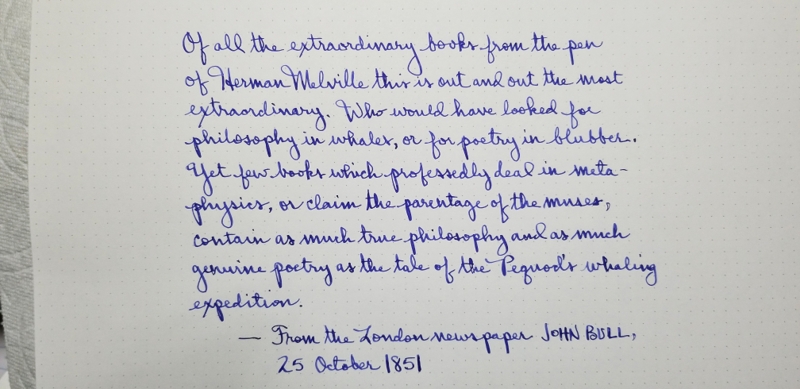 Of all the extraordinary books from the pen
of Herman Melville this is out and out the most
extraordinary. Who would have looked for
philosophy in whales, or for poetry in blubber.
Yet few books which professedly deal in meta-
physics, or claim the parentage of the muses,
contain as much true philosophy and as much
genuine poetry as the tale of the Pequod's whaling
expedition.
— From the London newspaper JOHN BULL,
25 October 1851